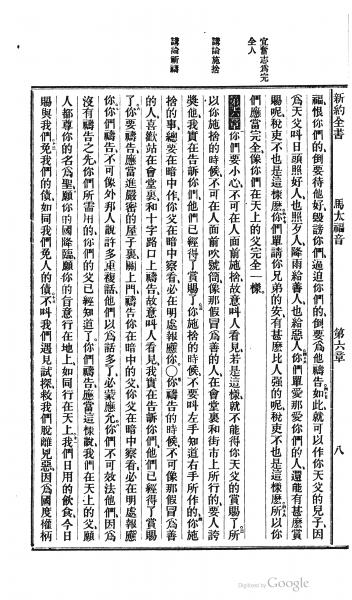 新約全書 馬太福音 第六章 八
宜奮志爲完全人
講論施捨
講論祈禱
福恨你們的倒要待他好毀謗你們逼迫你們的倒要爲他禱告如此就可以作你天父的兒子因
爲天父叫日頭照好人也照歹人降雨給善人也給惡人你們單愛那愛你們的人還能有甚麽賞
賜呢稅吏不也是這樣麽你們單請你兄弟的安有甚麽比人強的呢稅吏不也是這樣麽所以你
們應當完全像你們在天上的父完全一樣
第六章你們要小心不可在人面前施捨故意叫人看見若是這樣就不能得你天父的賞賜了所
以你施捨的時候不可在人面前吹號筒像那假冒爲善的人在會堂裏和街市上所行的要人誇
獎他我實在告訴你們他們已經得了賞賜了你施捨的時候不要叫左手知道右手所作的你施
捨的事總要在暗中作你父在暗中察看必在明處報應你〇你禱告的時候不可像那假冒爲善
的人喜歡站在會堂裏和十字路口上禱告故意叫人看見我實在告訴你們他們已經得了賞賜
了你要禱告應當進嚴密的屋子裏關上門禱告你在暗中的父你父在暗中察看必在明處報應
你你們禱告不可像外邦人說許多重複話他們以爲話多了必蒙應允你們不可效法他們因爲
沒有禱告之先你們所需用的你們的父已經知道了你們禱告應當這樣說我們在天上的父願
人都尊你的名爲聖願你的國降臨願你的旨意行在地上如同行在天上我們日用的飲食今日
賜與我們免我們的債如同我們免人的債不叫我們遇見試探救我們脫離兇惡因爲國度權柄
Digitized by Google